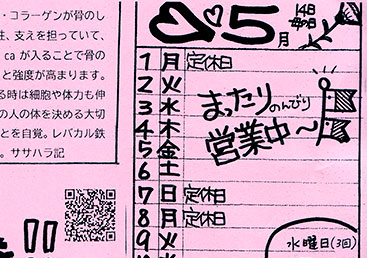 ・コラーゲンが骨のし
性、支えを担っていて、
caが入ることで骨の
と強度が高まります。
る時は細胞や体力も伸
の人の体を決める大切
とを自覚。レバカル鉄
。ササハラ記
!!
5月
14日
母の日
1 月 定休日
2 火
3 水
4 木
5 金
6 土
7 日 定休日
8 月 定休日
9 火
まったりのんびり
営業中～
水曜日(3回)